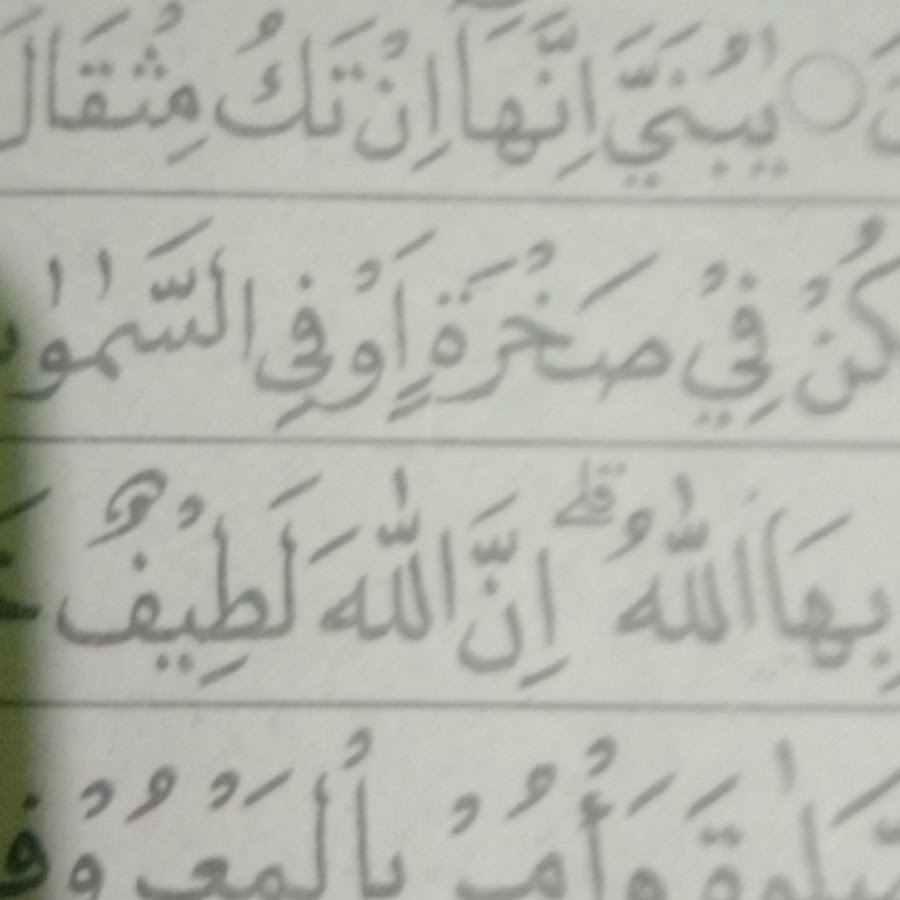 يٰبُنَيَّ اِنَّهَاۤ اِنْ تَكُ مِثْقَالَ
كُنْ فِيْ صَخْرَةٍ اَوْ فِي السَّمٰوٰ
بِهَا اللّٰهُ ؕ اِنَّ اللّٰهَ لَطِيْفٌ
وَاْمُرْ بِالْمَعْرُوْفِ